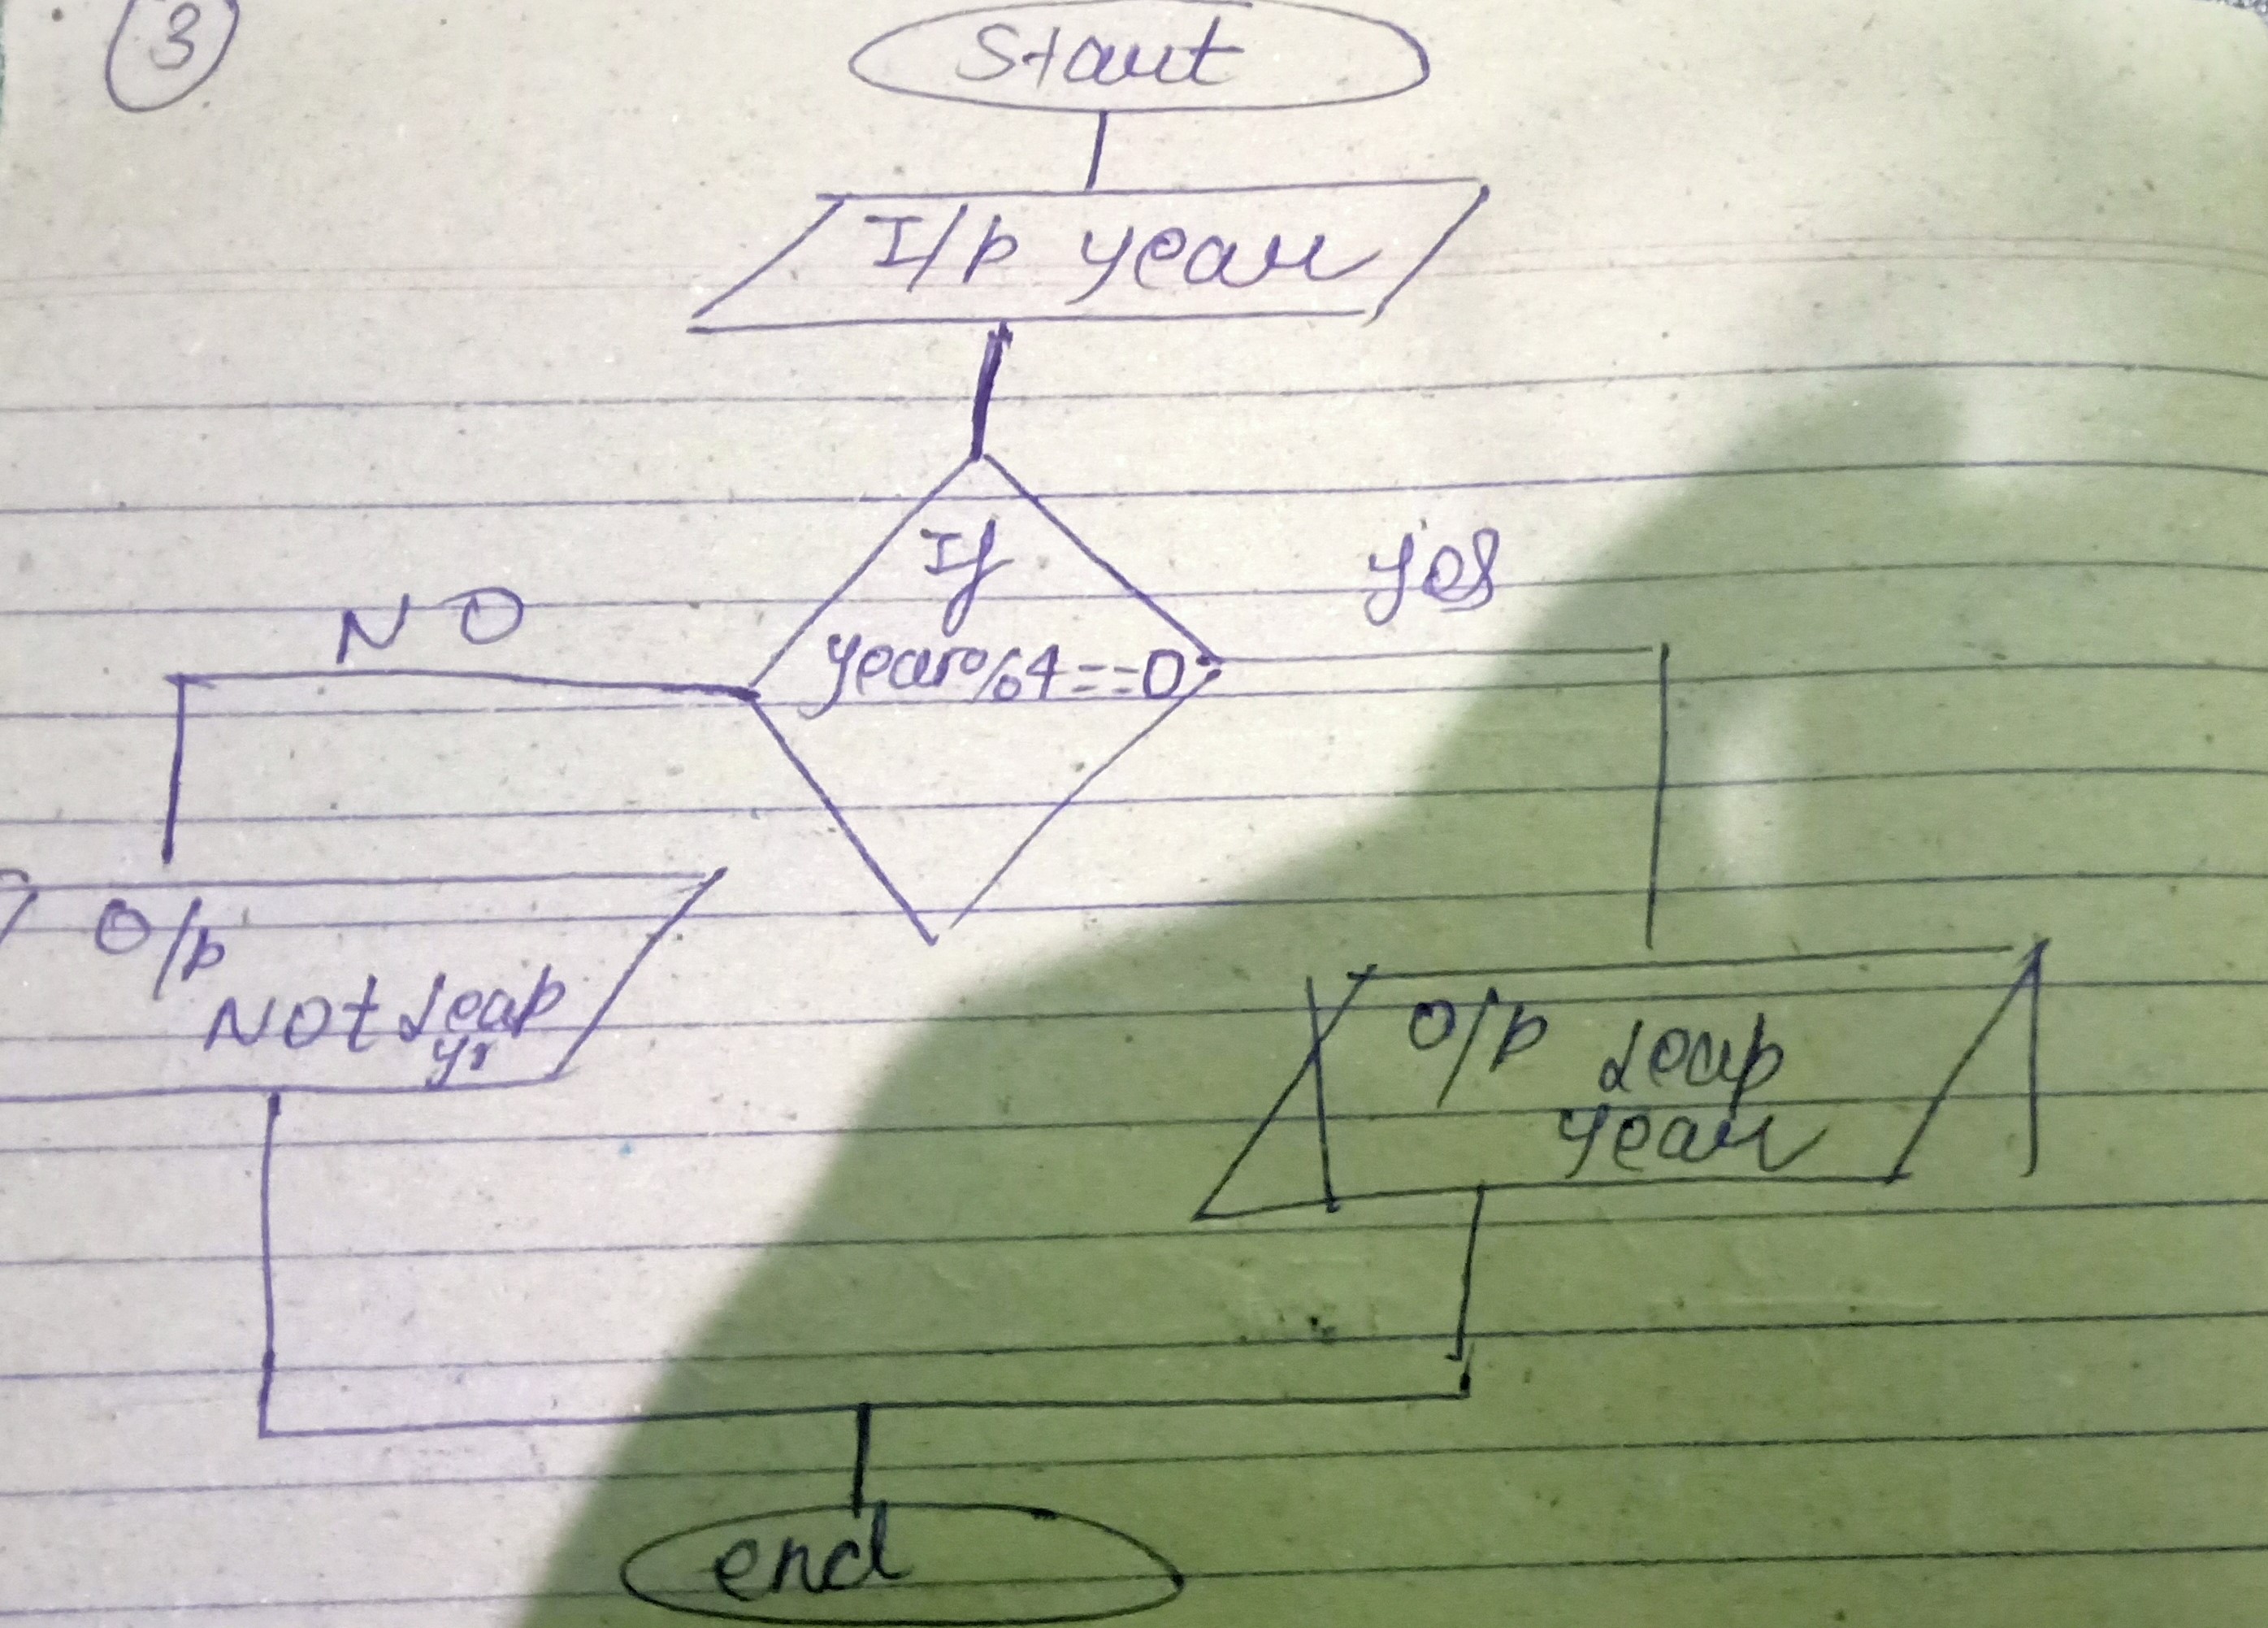 3
Start
I/p year
If
year%4==0
NO
yes
O/p
NOt Leap
yr
O/p Leap
year
end